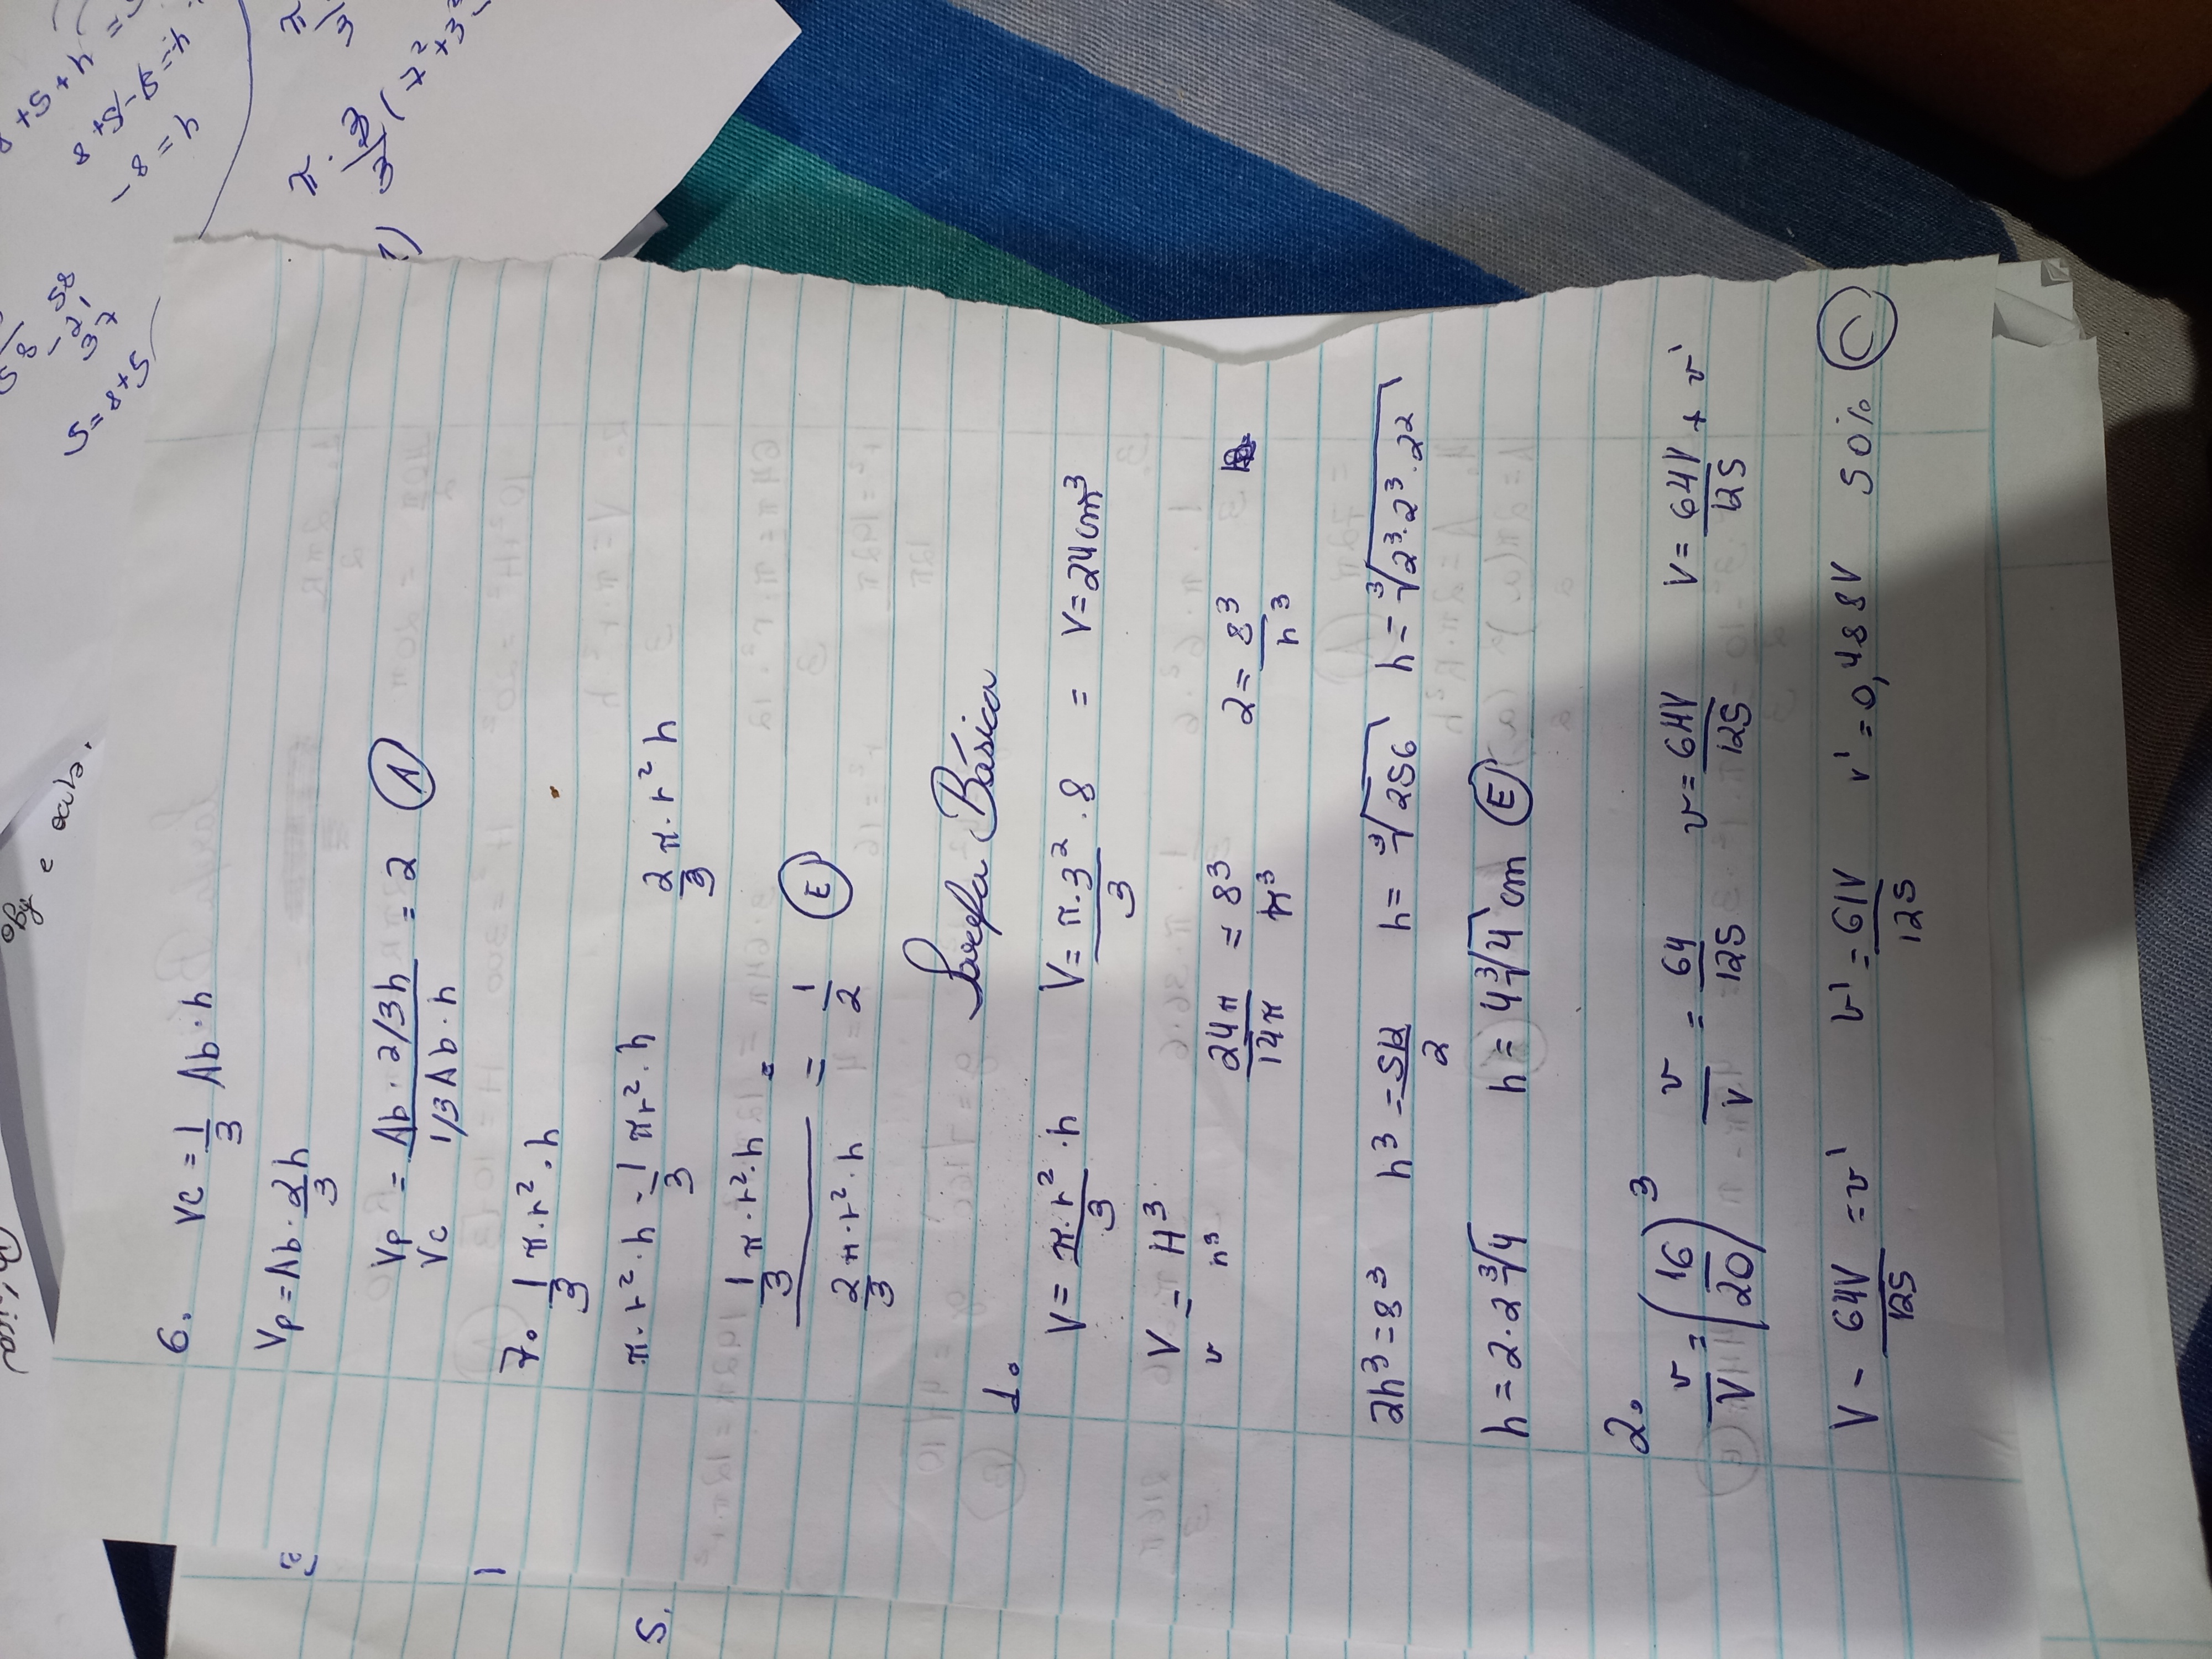 6. Vc = 1/3 Ab · h
Vp = Ab · 2h/3
Vp/Vc = Ab · 2/3h / 1/3 Ab · h = 2 (A)
7. 1/3 π · r² · h
π · r² · h - 1/3 πr² · h   2/3 π · r² h
1/3 π · r² · h / 2/3 π · r² · h = = 1/2 (E)
Tarefa Básica
1.
V = π · r²/3 · h   V = π · 3²/3 · 8 = V = 24 cm³
V/v = H³/h³
24π/14π = 8³/h³   2 = 8³/h³
2h³ = 8³   h³ = 512/2   h = ³√256   h = ³√2³ · 2³ · 2²
h = 2 · 2 ³√4   h = 4 ³√4 cm (E)
2.
v/V = (16/20)³   v/v = 64/125   v = 64V/125   V = 64V/125 + v'
V - 64V/125 = v'   v' = 61V/125   v' = 0,488V   50% (C)
ogo e
5 = 8 + 5
S.